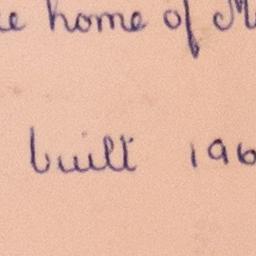 home of
built 196